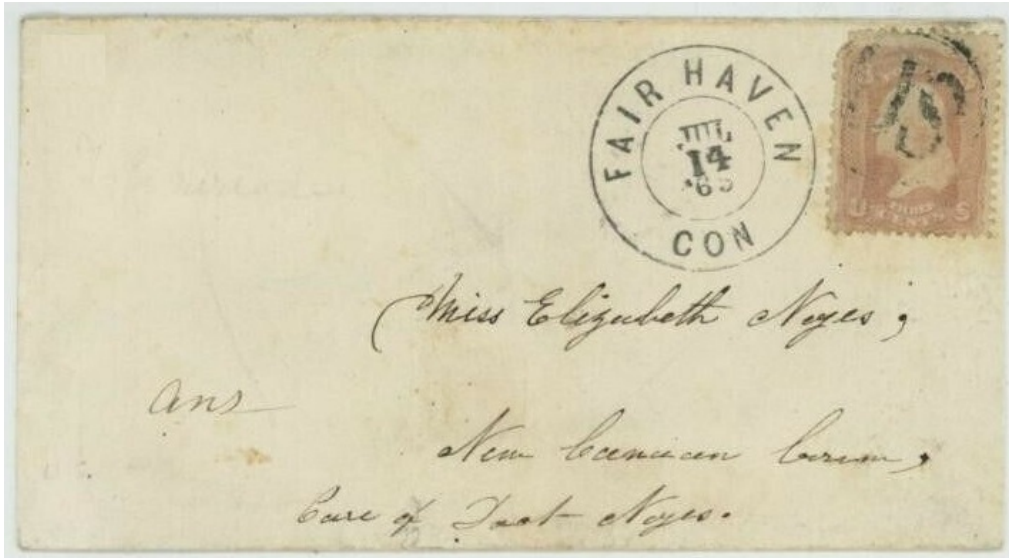 FAIR HAVEN
JUL
14
CON
Miss Elizabeth Noyes,
ans
New Canaan Conn,
Care of Doct Noyes.
U S